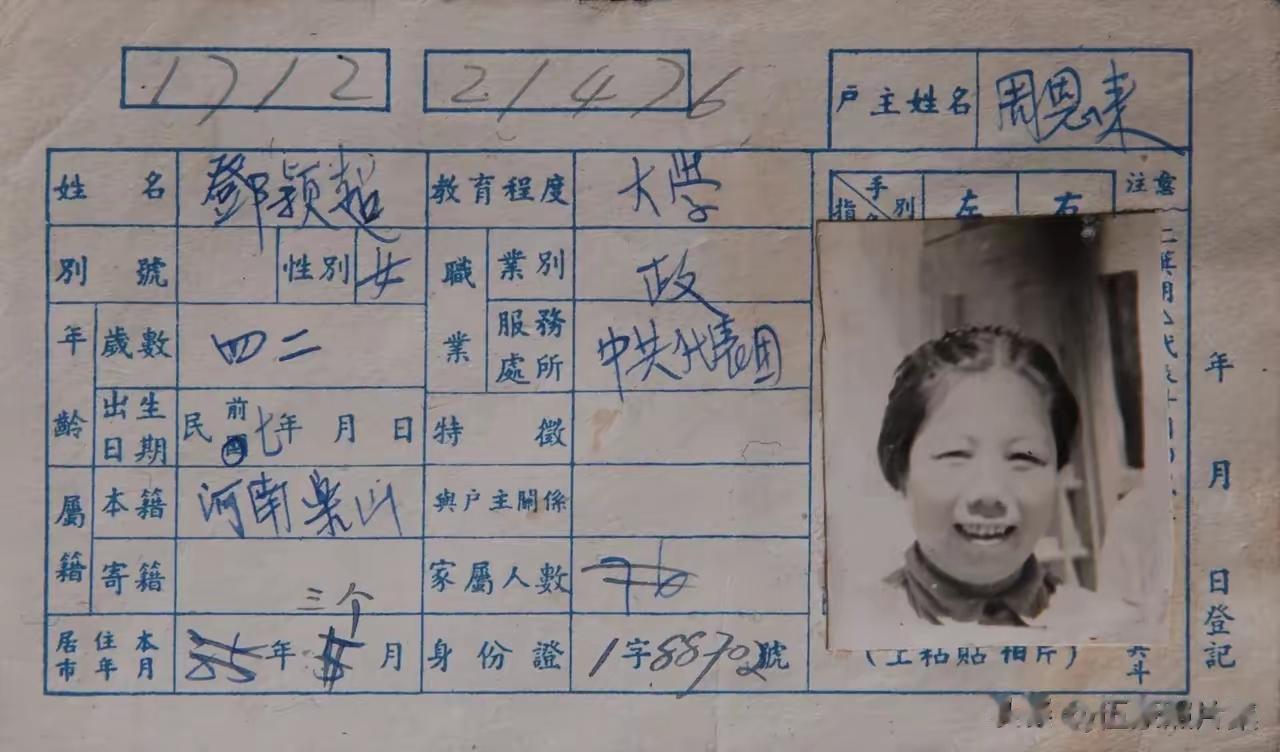 1712 21476
戶主姓名 周恩来
姓名 鄧颖超 教育程度 大学
手 指 別 左 右 注意
別號 性別 女 職業 業別 政
年齡 歲數 四二 服務處所 中共代表团
出生日期 民前七年 月 日 特徵
屬籍 本籍 河南 山 與戶主關係
寄籍 家屬人數 76
三个
居住本市年月 85年 月 身份證 1字88702號
(上粘貼相片)
年 月 日登記